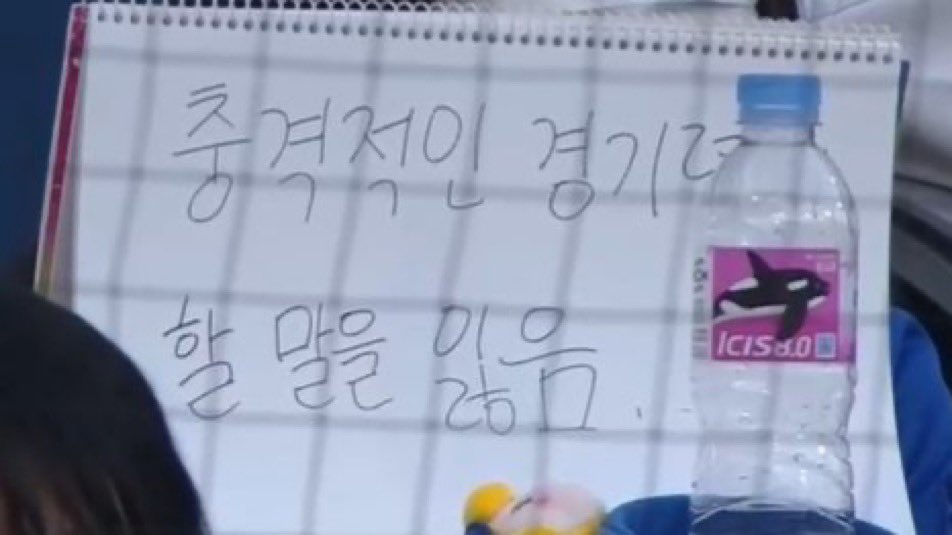 충격적인 경기력
할 말을 잃음..
ICIS 8.0